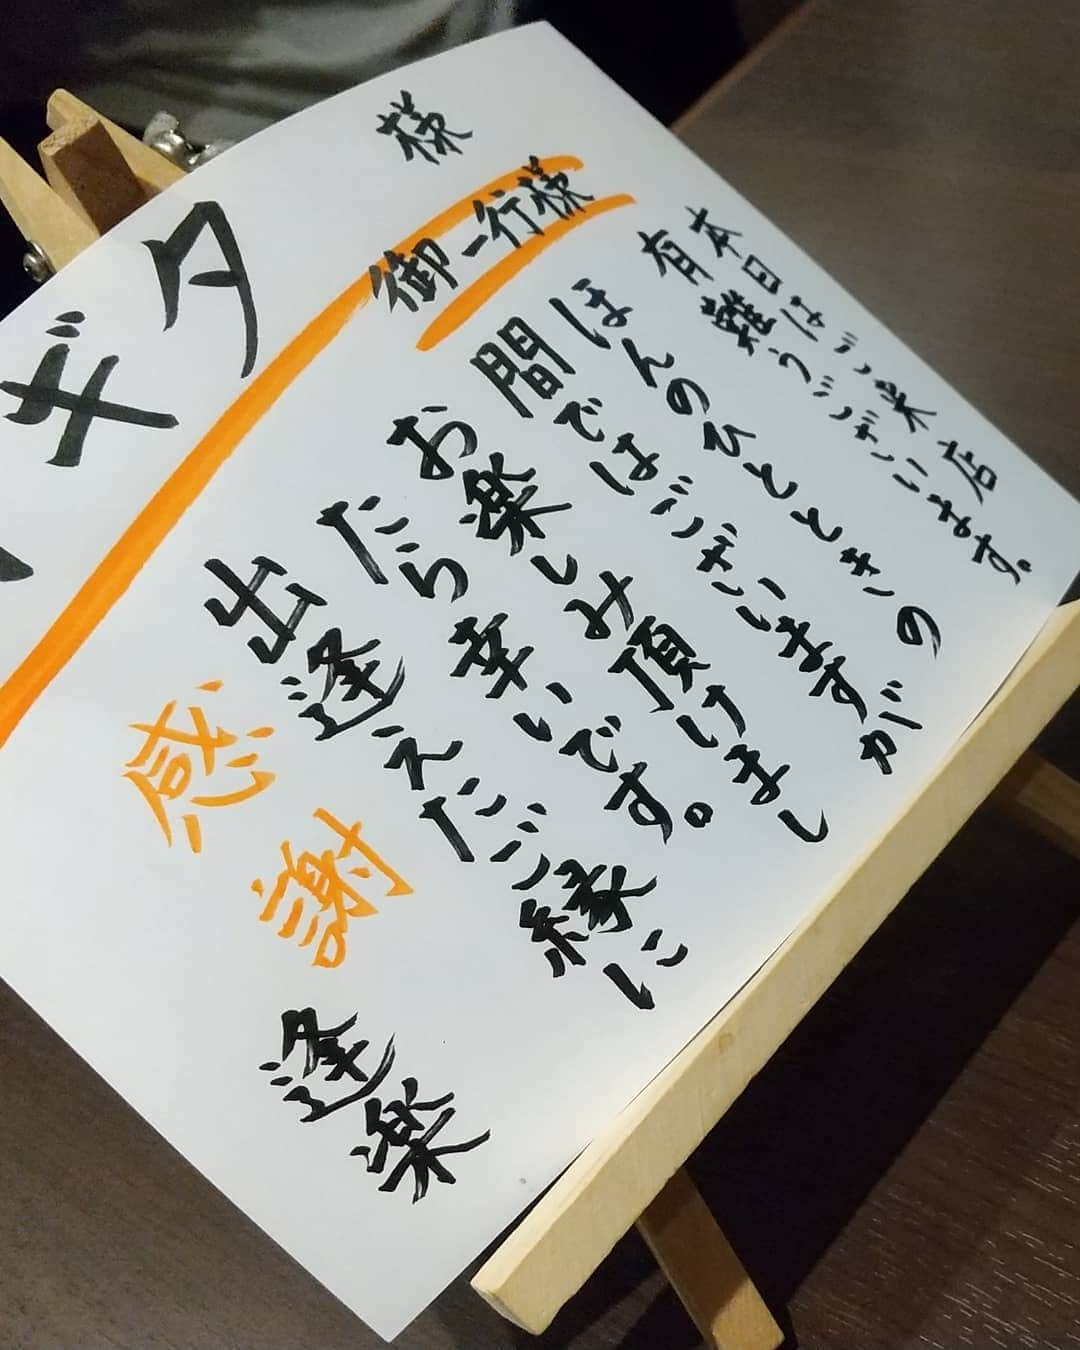 ギタ
様
御一行様
本日はご来店
有難うございます。
ほんのひとときの
間ではございますが
お楽しみ頂けまし
たら幸いです。
出逢えたご縁に
感謝
逢楽